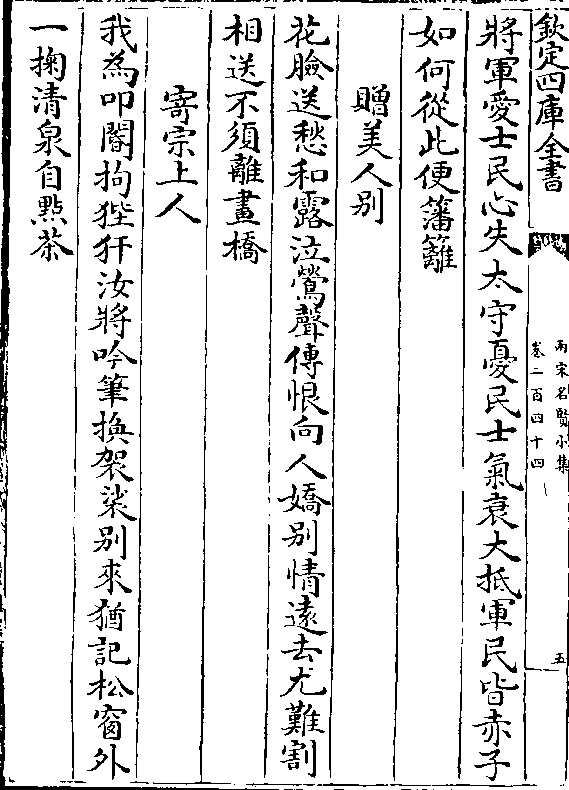 欽定四庫全書
兩宋名賢小集
卷二百四十四
五
將軍愛士民心失太守憂民士氣衰大抵軍民皆赤子
如何從此便籓籬
贈美人别
花臉送愁和露泣鶯聲傳恨向人嬌别情遠去尤難割
相送不須離畫橋
寄宗上人
我為叩閽拘狴犴汝將吟筆換袈裟别來猶記松窗外
一掬清泉自點茶